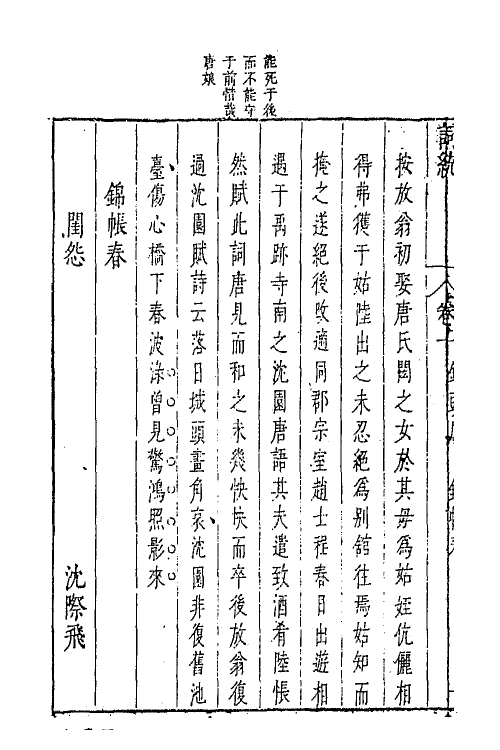 詞統
卷十
能死于後
而不能守
于前惜哉
唐娘
按放翁初娶唐氏閎之女於其母為姑姪伉儷相
得弗獲于姑陸出之未忍絕為別舘往焉姑知而
掩之遂絕後改適同郡宗室趙士程春日出遊相
遇于禹跡寺南之沈園唐語其夫遣致酒肴陸悵
然賦此詞唐見而和之未幾怏怏而卒後放翁復
過沈園賦詩云落日城頭畫角哀沈園非復舊池
臺傷心橋下春波淥曾見驚鴻照影來
錦帳春
閨怨 沈際飛